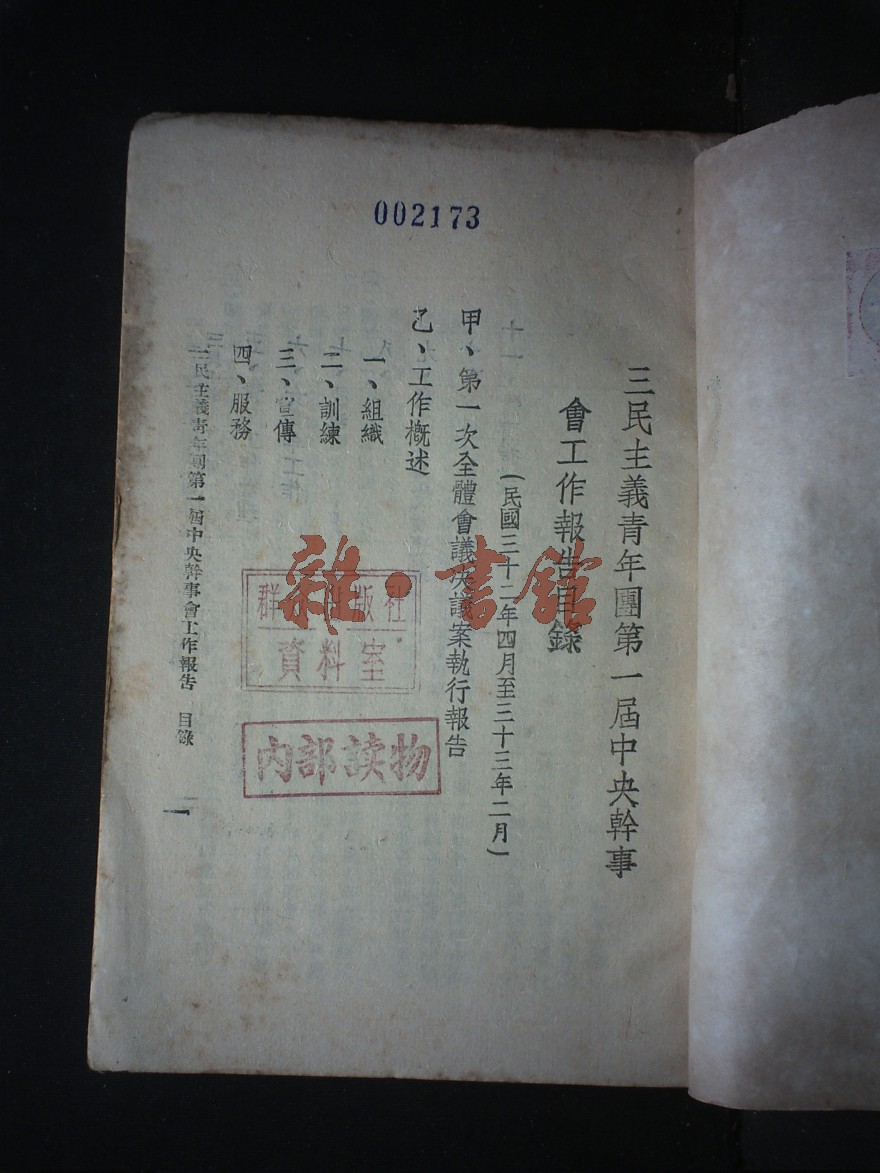 002173
三民主義青年團第一屆中央幹事
會工作報告目錄
(民國三十二年四月至三十三年二月)
甲、第一次全體會議決議案執行報告
乙、工作概述
一、組織
二、訓練
三、宣傳
四、服務
三民主義青年團第一屆中央幹事會工作報告 目錄
一
群 版社
資料室
内部读物
雜·書館